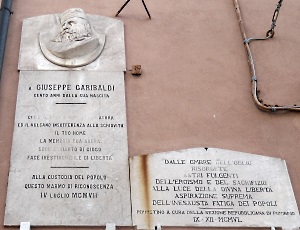 A GIUSEPPE GARIBALDI
CENTO ANNI DALLA SUA NASCITA
ED IL
INSOFFERENZA ALLA SCHIAVITÙ
IL TUO NOME
LA MEMORIA TUA SACRA
DI GIOGO
FACE INESTINGUIBILE DI LIBERTÀ
ALLA CUSTODIA DEL POPOLO
QUESTO MARMO DI RICONOSCENZA
IV LUGLIO MCMVII
DALLE OMBRE DELL'OBLIO
RISORGETE
ASTRI FULGENTI
DELL'EROISMO E DEL SACRIFIZIO
ALLA LUCE DELLA DIVINA LIBERTÀ
ASPIRAZIONE SUPREMA
DELL'INESAUSTA FATICA DEI POPOLI
A CURA DELLA SEZIONE REPUBBLICANA DI